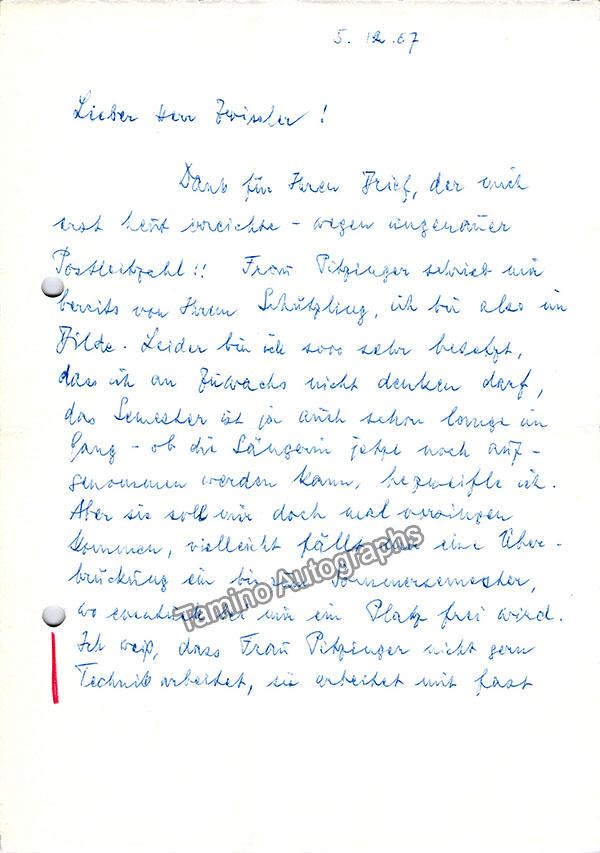 5. 12. 67
Lieber Herr Zwissler!
Dank für Ihren Brief, der mich
erst heut erreichte - wegen ungenauer
Postleitzahl!! Frau Pitzinger schrieb mir
bereits von Ihrem Schützling, ich bin also im
Bilde. Leider bin ich sooo sehr besetzt,
dass ich an Zuwachs nicht denken darf,
das Semester ist ja auch schon lange im
Gang - ob die Sängerin jetzt noch auf-
genommen werden kann, bezweifle ich.
Aber sie soll mir doch mal vorsingen
kommen, vielleicht fällt mir eine Über-
brückung ein bis zum Sommersemester,
wo eventuell bei mir ein Platz frei wird.
Ich weiß, dass Frau Pitzinger nicht gern
Technik arbeitet, sie arbeitet mit fast
Tamino Autographs